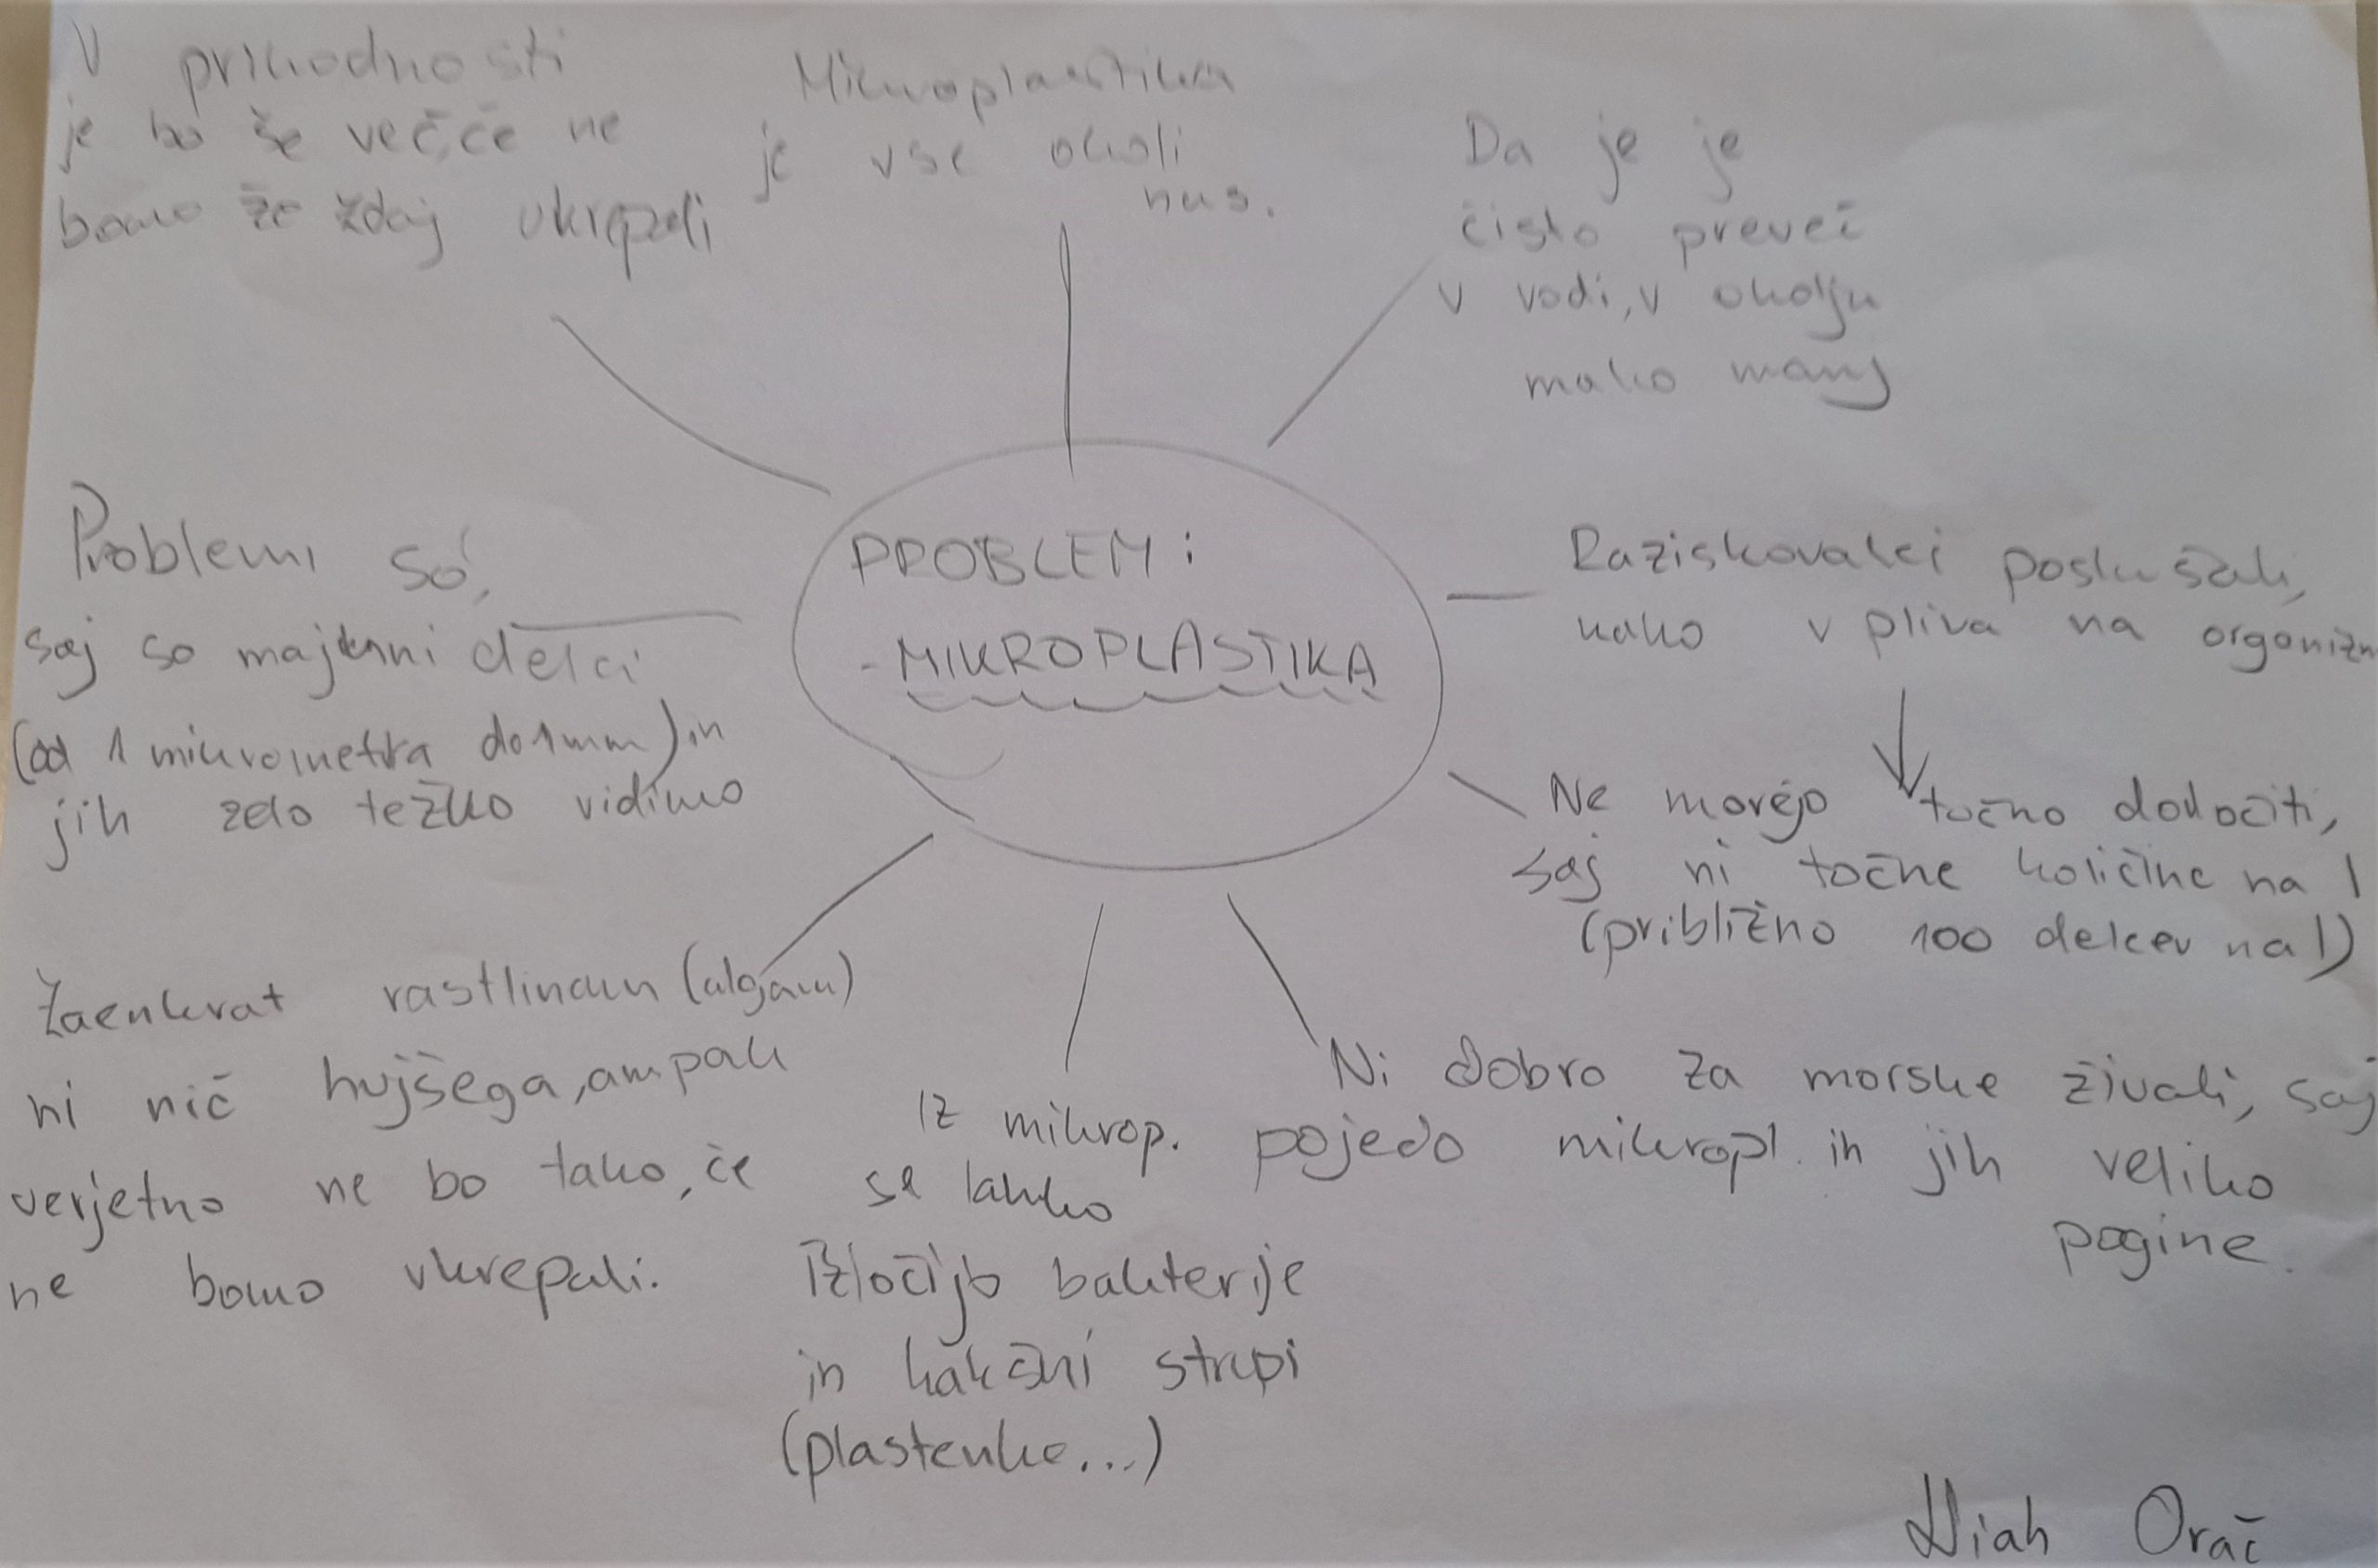 V prihodnosti
je bo še več, če ne
bomo že zdaj ukrepali
Mikroplastika
je vse okoli
nas.
Da je je
čisto preveč
v vodi, v okolju
malo manj
PROBLEM:
- MIKROPLASTIKA
Problemi so,
saj so majhni delci
(od 1 mikrometra do 1 mm) in
jih zelo težko vidimo
Raziskovalci poskušali,
kako vpliva na organizm
Ne morejo točno določiti,
saj ni točne količine na l
(približno 100 delcev na l)
Ni dobro za morske živali, saj
pojedo mikropl. in jih veliko
pogine.
Iz mikrop.
se lahko
izločijo bakterije
in kakšni strupi
(plastenke...)
Zaenkrat rastlinam (algam)
ni nič hujšega, ampak
verjetno ne bo tako, če
ne bomo ukrepali.
Orač